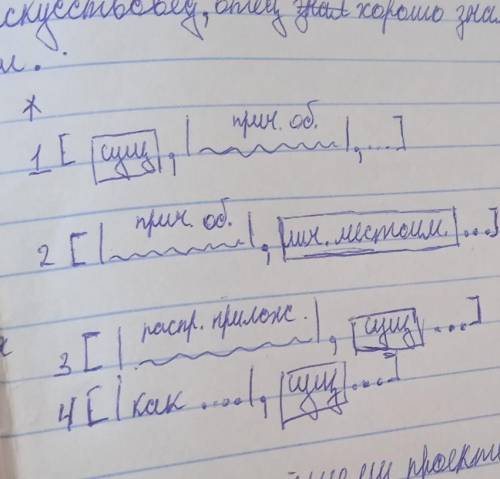 скусствовед, отец знал хорошо зна
*
1 [ сущ , | прич. об. | , ... ]
2 [ | прич. об. | , лич. местоим. ... ]
3 [ | распр. прилож. | , сущ ... ]
4 [ | как ..... | , сущ ... ]
проект